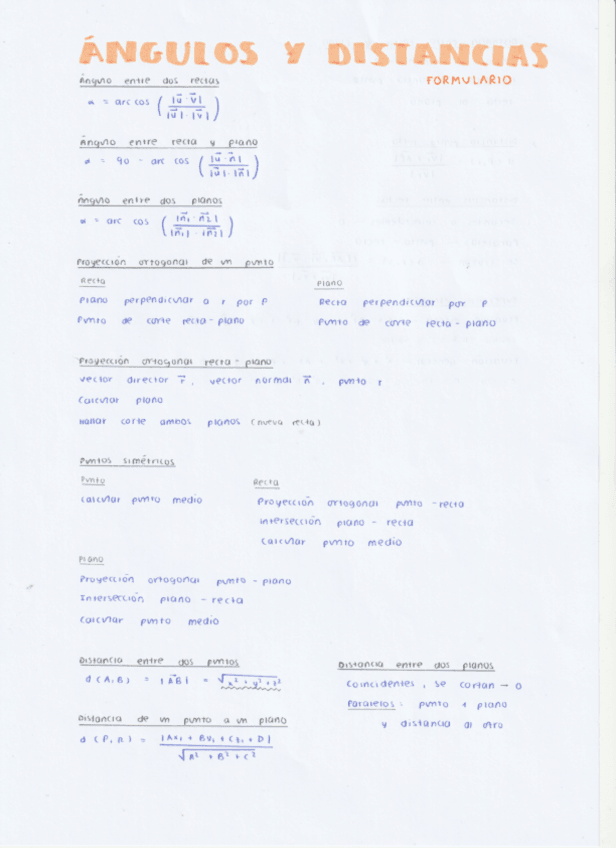 ÁNGULOS Y DISTANCIAS
FORMULARIO
Ángulo entre dos rectas
α = arc cos ( |u⃗ · v⃗| / |u⃗| · |v⃗| )
Ángulo entre recta y plano
α = 90 - arc cos ( |u⃗ · n⃗| / |u⃗| · |n⃗| )
Ángulo entre dos planos
α = arc cos ( |n⃗₁ · n⃗₂| / |n⃗₁| · |n⃗₂| )
Proyección ortogonal de un punto
Recta
Plano perpendicular a r por P
Punto de corte recta - plano
Plano
Recta perpendicular por P
Punto de corte recta - plano
Proyección ortogonal recta - plano
vector director r⃗, vector normal n⃗, punto r
Calcular plano
Hallar corte ambos planos (nueva recta)
Puntos simétricos
Punto
Calcular punto medio
Recta
Proyección ortogonal punto - recta
Intersección plano - recta
Calcular punto medio
Plano
Proyección ortogonal punto - plano
Intersección plano - recta
Calcular punto medio
Distancia entre dos puntos
d (A, B) = |A⃗B⃗| = √x² + y² + z²
Distancia de un punto a un plano
d (P, π) = |Ax₁ + By₁ + Cz₁ + D| / √A² + B² + C²
Distancia entre dos planos
Coincidentes, se cortan → 0
Paralelos: punto 1 plano
y distancia al otro